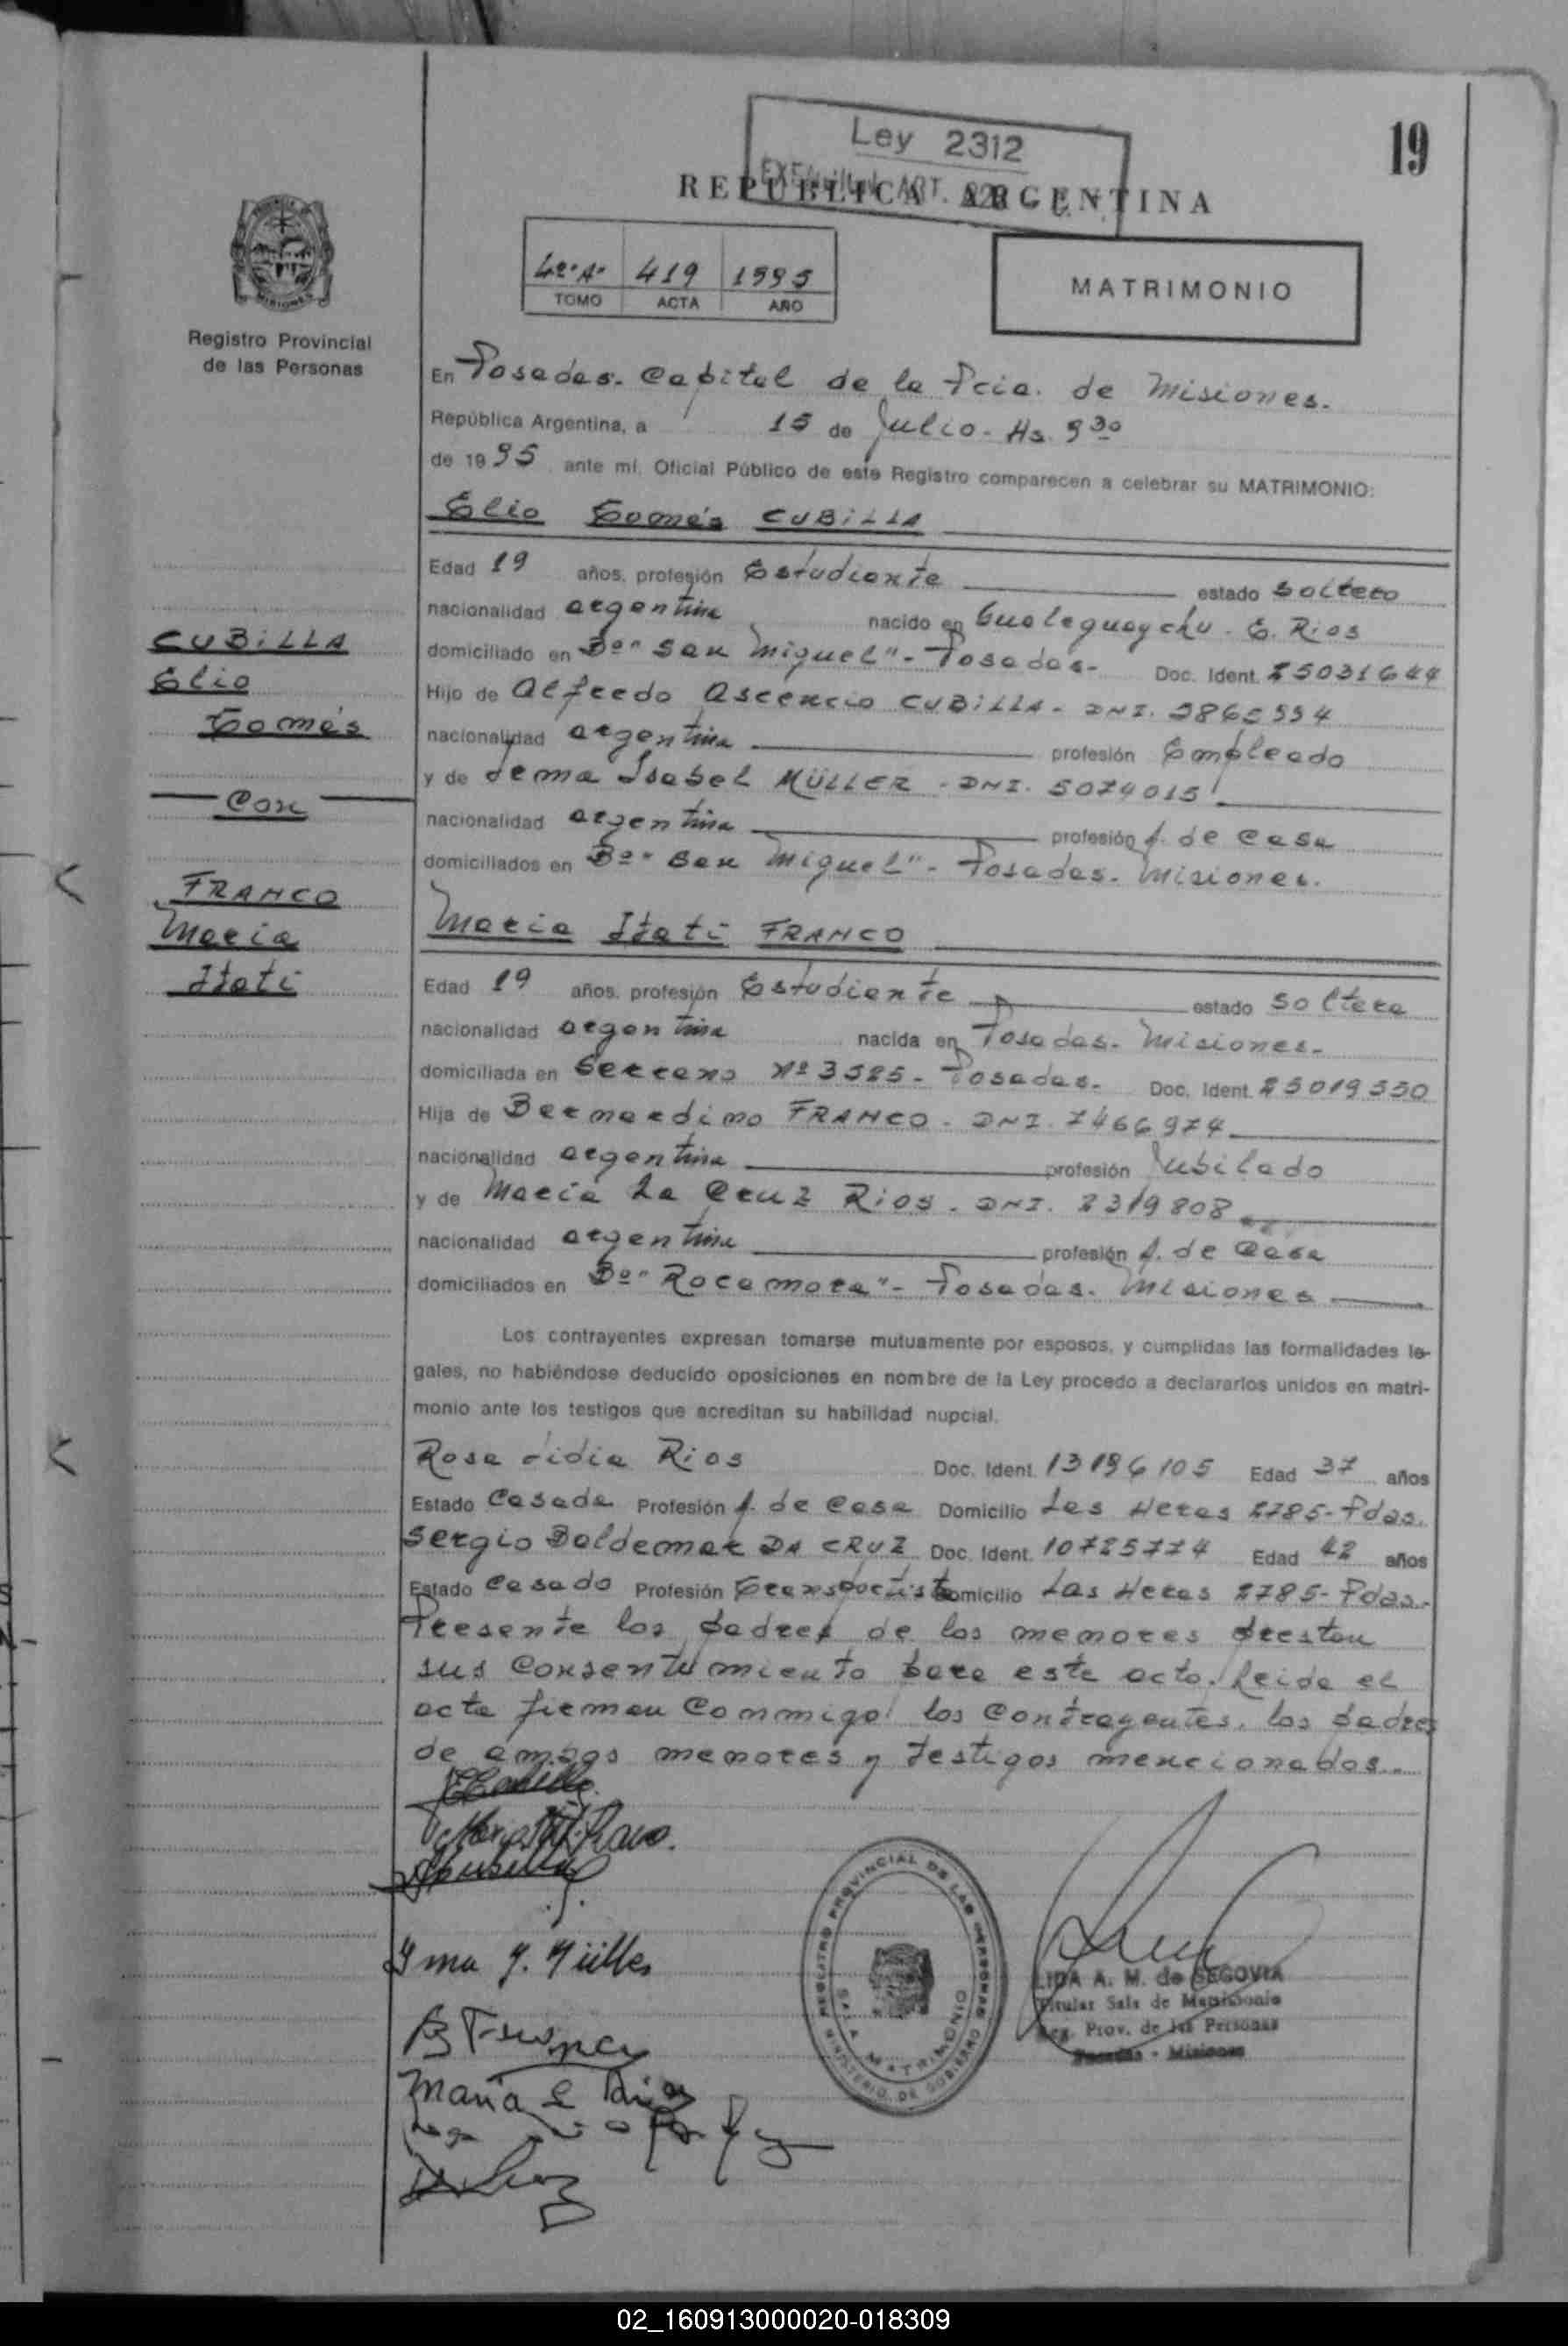 19
Ley 2312
REPUBLICA ARGENTINA
ART.
4º A° 419 1995
TOMO ACTA AÑO
MATRIMONIO
MISIONES
Registro Provincial
de las Personas
En Posadas. Capital de la Pcia. de Misiones.
República Argentina, a 15 de Julio. Hs. 9 30
de 1995 ante mí, Oficial Público de este Registro comparecen a celebrar su MATRIMONIO:
Elio Tomás CUBILLA
Edad 19 años, profesión Estudiante estado soltero
nacionalidad argentina nacido en Gualeguaychu - E. Rios
domiciliado en Bº "San Miguel" - Posadas - Doc. Ident. 25031644
Hijo de Alfredo Ascencio CUBILLA - DNI.
nacionalidad argentina profesión Empleado
y de Isabel MÜLLER - DNI. 5074015
nacionalidad argentina profesión A. de Casa
domiciliados en Bº "San Miguel" - Posadas. Misiones.
CUBILLA
Elio
Tomás
Con
FRANCO
Maria
Itati
Maria Itati FRANCO
Edad 19 años, profesión Estudiante estado soltera
nacionalidad argentina nacida en Posadas. Misiones.
domiciliada en Serrano Nº 3525 - Posadas. Doc. Ident. 25019550
Hija de Bernardino FRANCO - DNI. 7466974
nacionalidad argentina profesión Jubilado
y de Maria La Cruz Rios - DNI. 2319808
nacionalidad argentina profesión A. de Casa
domiciliados en Bº "Rocamora" - Posadas. Misiones
Los contrayentes expresan tomarse mutuamente por esposos, y cumplidas las formalidades le-
gales, no habiéndose deducido oposiciones en nombre de la Ley procedo a declararlos unidos en matri-
monio ante los testigos que acreditan su habilidad nupcial.
Rosa Lidia Rios Doc. Ident. 13196105 Edad 37 años
Estado Casada Profesión A. de Casa Domicilio Las Heras 2785 - Pdas.
Sergio Baldemar DA CRUZ Doc. Ident. 10725774 Edad 42 años
Estado Casado Profesión Transportista Domicilio Las Heras 2785 - Pdas.
Presente los padres de los menores prestan
sus consentimiento para este acto. Leida el
acta firman conmigo los contrayentes, los padres
de ambos menores y testigos mencionados.
REGISTRO PROVINCIAL DE LAS PERSONAS
SALA MATRIMONIO
MINISTERIO DE GOBIERNO
LIDA A. M. de SEGOVIA
Titular Sala de Matrimonio
Reg. Prov. de las Personas
Posadas - Misiones
02_160913000020-018309